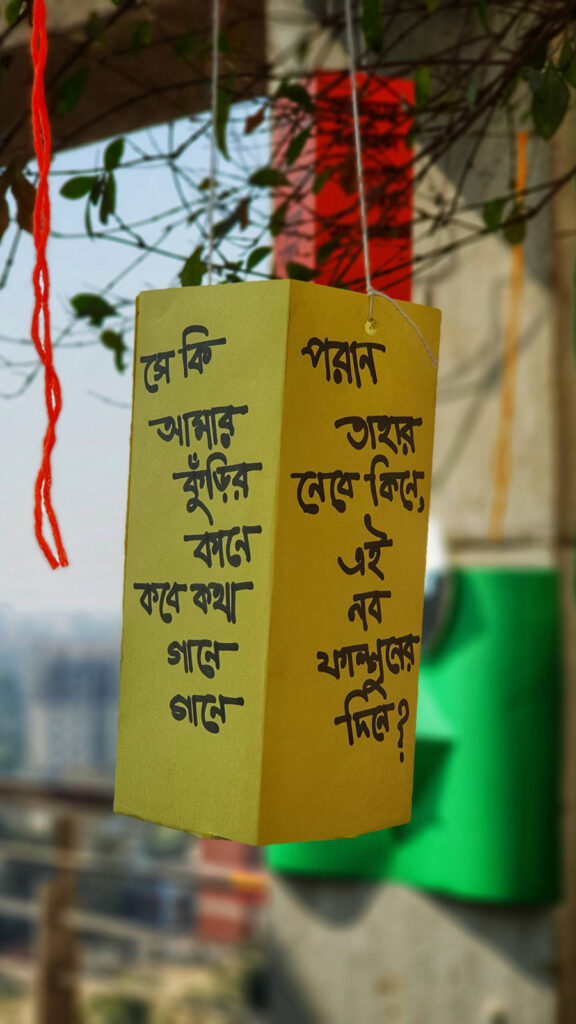 সে কি
আমার
কুঁড়ির
কানে
কবে কথা
গানে
গানে
পরান
তাহার
নেবে কিনে,
এই
নব
ফাল্গুনের
দিনে?